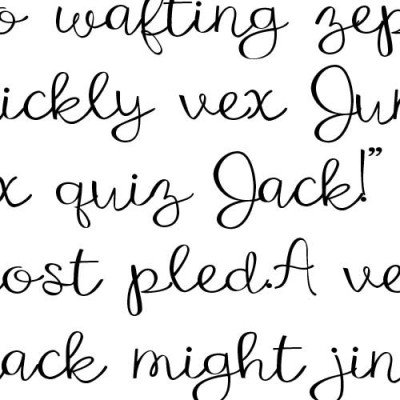 o wafting zep
ickly vex Jun
x quiz Jack!”
ost pled.A ve
ack might jin